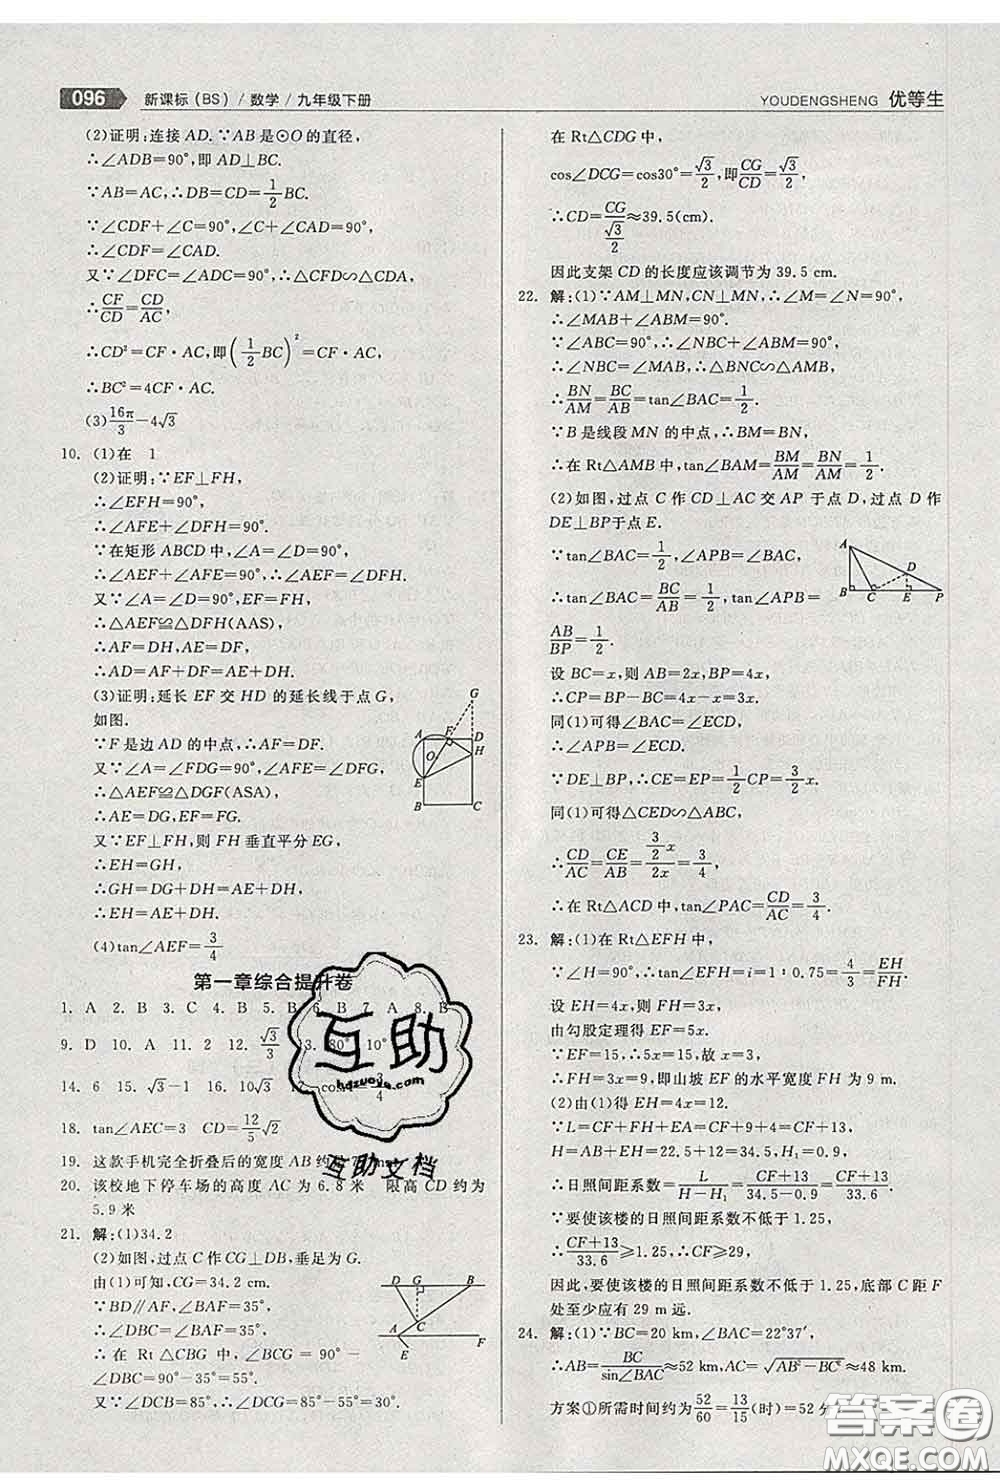 096 新课标(BS) / 数学 / 九年级下册
YOUDENGSHENG 优等生
(2)证明:连接 AD.∵AB是⊙O的直径,
∴∠ADB=90°,即 AD⊥BC.
∵AB=AC,∴DB=CD=1/2BC.
∵∠CDF+∠C=90°,∠C+∠CAD=90°,
∴∠CDF=∠CAD.
又∵∠DFC=∠ADC=90°,∴△CFD∽△CDA,
∴CF/CD=CD/AC,
∴CD²=CF·AC,即(1/2BC)²=CF·AC,
∴BC²=4CF·AC.
(3)16π/3-4√3
10. (1)在 1
(2)证明:∵EF⊥FH,
∴∠EFH=90°,
∴∠AFE+∠DFH=90°.
∵在矩形 ABCD 中,∠A=∠D=90°,
∴∠AEF+∠AFE=90°,∴∠AEF=∠DFH.
又∵∠A=∠D=90°,EF=FH,
∴△AEF≌△DFH(AAS),
∴AF=DH,AE=DF,
∴AD=AF+DF=AE+DH.
(3)证明:延长 EF 交 HD 的延长线于点 G,
如图.
∵F 是边 AD 的中点,∴AF=DF.
又∵∠A=∠FDG=90°,∠AFE=∠DFG,
∴△AEF≌△DGF(ASA),
∴AE=DG,EF=FG.
又∵EF⊥FH,则 FH 垂直平分 EG,
∴EH=GH.
∵GH=DG+DH=AE+DH,
∴EH=AE+DH.
(4)tan∠AEF=3/4
G
A F D
H
O
E
B C
第一章综合提升卷
1. A 2. B 3. C 4. B 5. B 6. B 7. A 8. B
9. D 10. A 11. 2 12. √3/3
14. 6 15. √3-1 16. 10√3
18. tan∠AEC=3 CD=12/5√2
19. 这款手机完全折叠后的宽度 AB 约
20. 该校地下停车场的高度 AC 为 6.8 米 限高 CD 约为
5.9 米
21. 解:(1)34.2
(2)如图,过点 C 作 CG⊥DB,垂足为 G.
由(1)可知,CG=34.2 cm.
∵BD∥AF,∠BAF=35°,
∴∠DBC=∠BAF=35°,
∴在 Rt△CBG 中,∠BCG=90°-
∠DBC=90°-35°=55°.
又∵∠DCB=85°,∴∠DCG=85°-55°=30°.
D G B
C
A F
E
在 Rt△CDG 中,
cos∠DCG=cos30°=√3/2,即CG/CD=√3/2,
∴CD=CG/(√3/2)≈39.5(cm).
因此支架 CD 的长度应该调节为 39.5 cm.
22. 解:(1)∵AM⊥MN,CN⊥MN,∴∠M=∠N=90°,
∴∠MAB+∠ABM=90°.
∵∠ABC=90°,∴∠NBC+∠ABM=90°,
∴∠NBC=∠MAB,∴△NBC∽△AMB,
∴BN/AM=BC/AB=tan∠BAC=1/2.
∵B 是线段 MN 的中点,∴BM=BN,
∴在 Rt△AMB 中,tan∠MAB=BM/AM=BN/AM=1/2.
(2)如图,过点 C 作 CD⊥AC 交 AP 于点 D,过点 D 作
DE⊥BP于点 E.
∵tan∠BAC=1/2,∠APB=∠BAC,
∴tan∠BAC=BC/AB=1/2,tan∠APB=
AB/BP=1/2.
A
D
B C E P
设 BC=x,则 AB=2x,BP=4x,
∴CP=BP-BC=4x-x=3x.
同(1)可得∠BAC=∠ECD,
∴∠APB=∠ECD.
∵DE⊥BP,∴CE=EP=1/2CP=3/2x.
同(1)可得△CED∽△ABC,
∴CD/AC=CE/AB=(3/2x)/2x=3/4,
∴在 Rt△ACD 中,tan∠PAC=CD/AC=3/4.
23. 解:(1)在 Rt△EFH 中,
∵∠H=90°,∴tan∠EFH=i=1∶0.75=4/3=EH/FH.
设 EH=4x,则 FH=3x,
由勾股定理得 EF=5x.
∵EF=15,∴5x=15,故 x=3,
∴FH=3x=9,即山坡 EF 的水平宽度 FH 为 9 m.
(2)由(1)得 EH=4x=12.
∵L=CF+FH+EA=CF+9+4=CF+13,
H=AB+EH=22.5+12=34.5,H₁=0.9,
∴日照间距系数=L/(H-H₁)=(CF+13)/(34.5-0.9)=(CF+13)/33.6.
∵要使该楼的日照间距系数不低于 1.25,
∴(CF+13)/33.6≥1.25,∴CF≥29.
因此,要使该楼的日照间距系数不低于 1.25,底部 C 距 F
处至少应有 29 m 远.
24. 解:(1)∵BC=20 km,∠BAC=22°37′,
∴AB=BC/sin∠BAC≈52 km,AC=√(AB²-BC²)≈48 km.
方案①所需时间约为52/60=13/15(时)=52 分
互助
hdzuoye.com
互助文档
答案圈
MXQE.COM